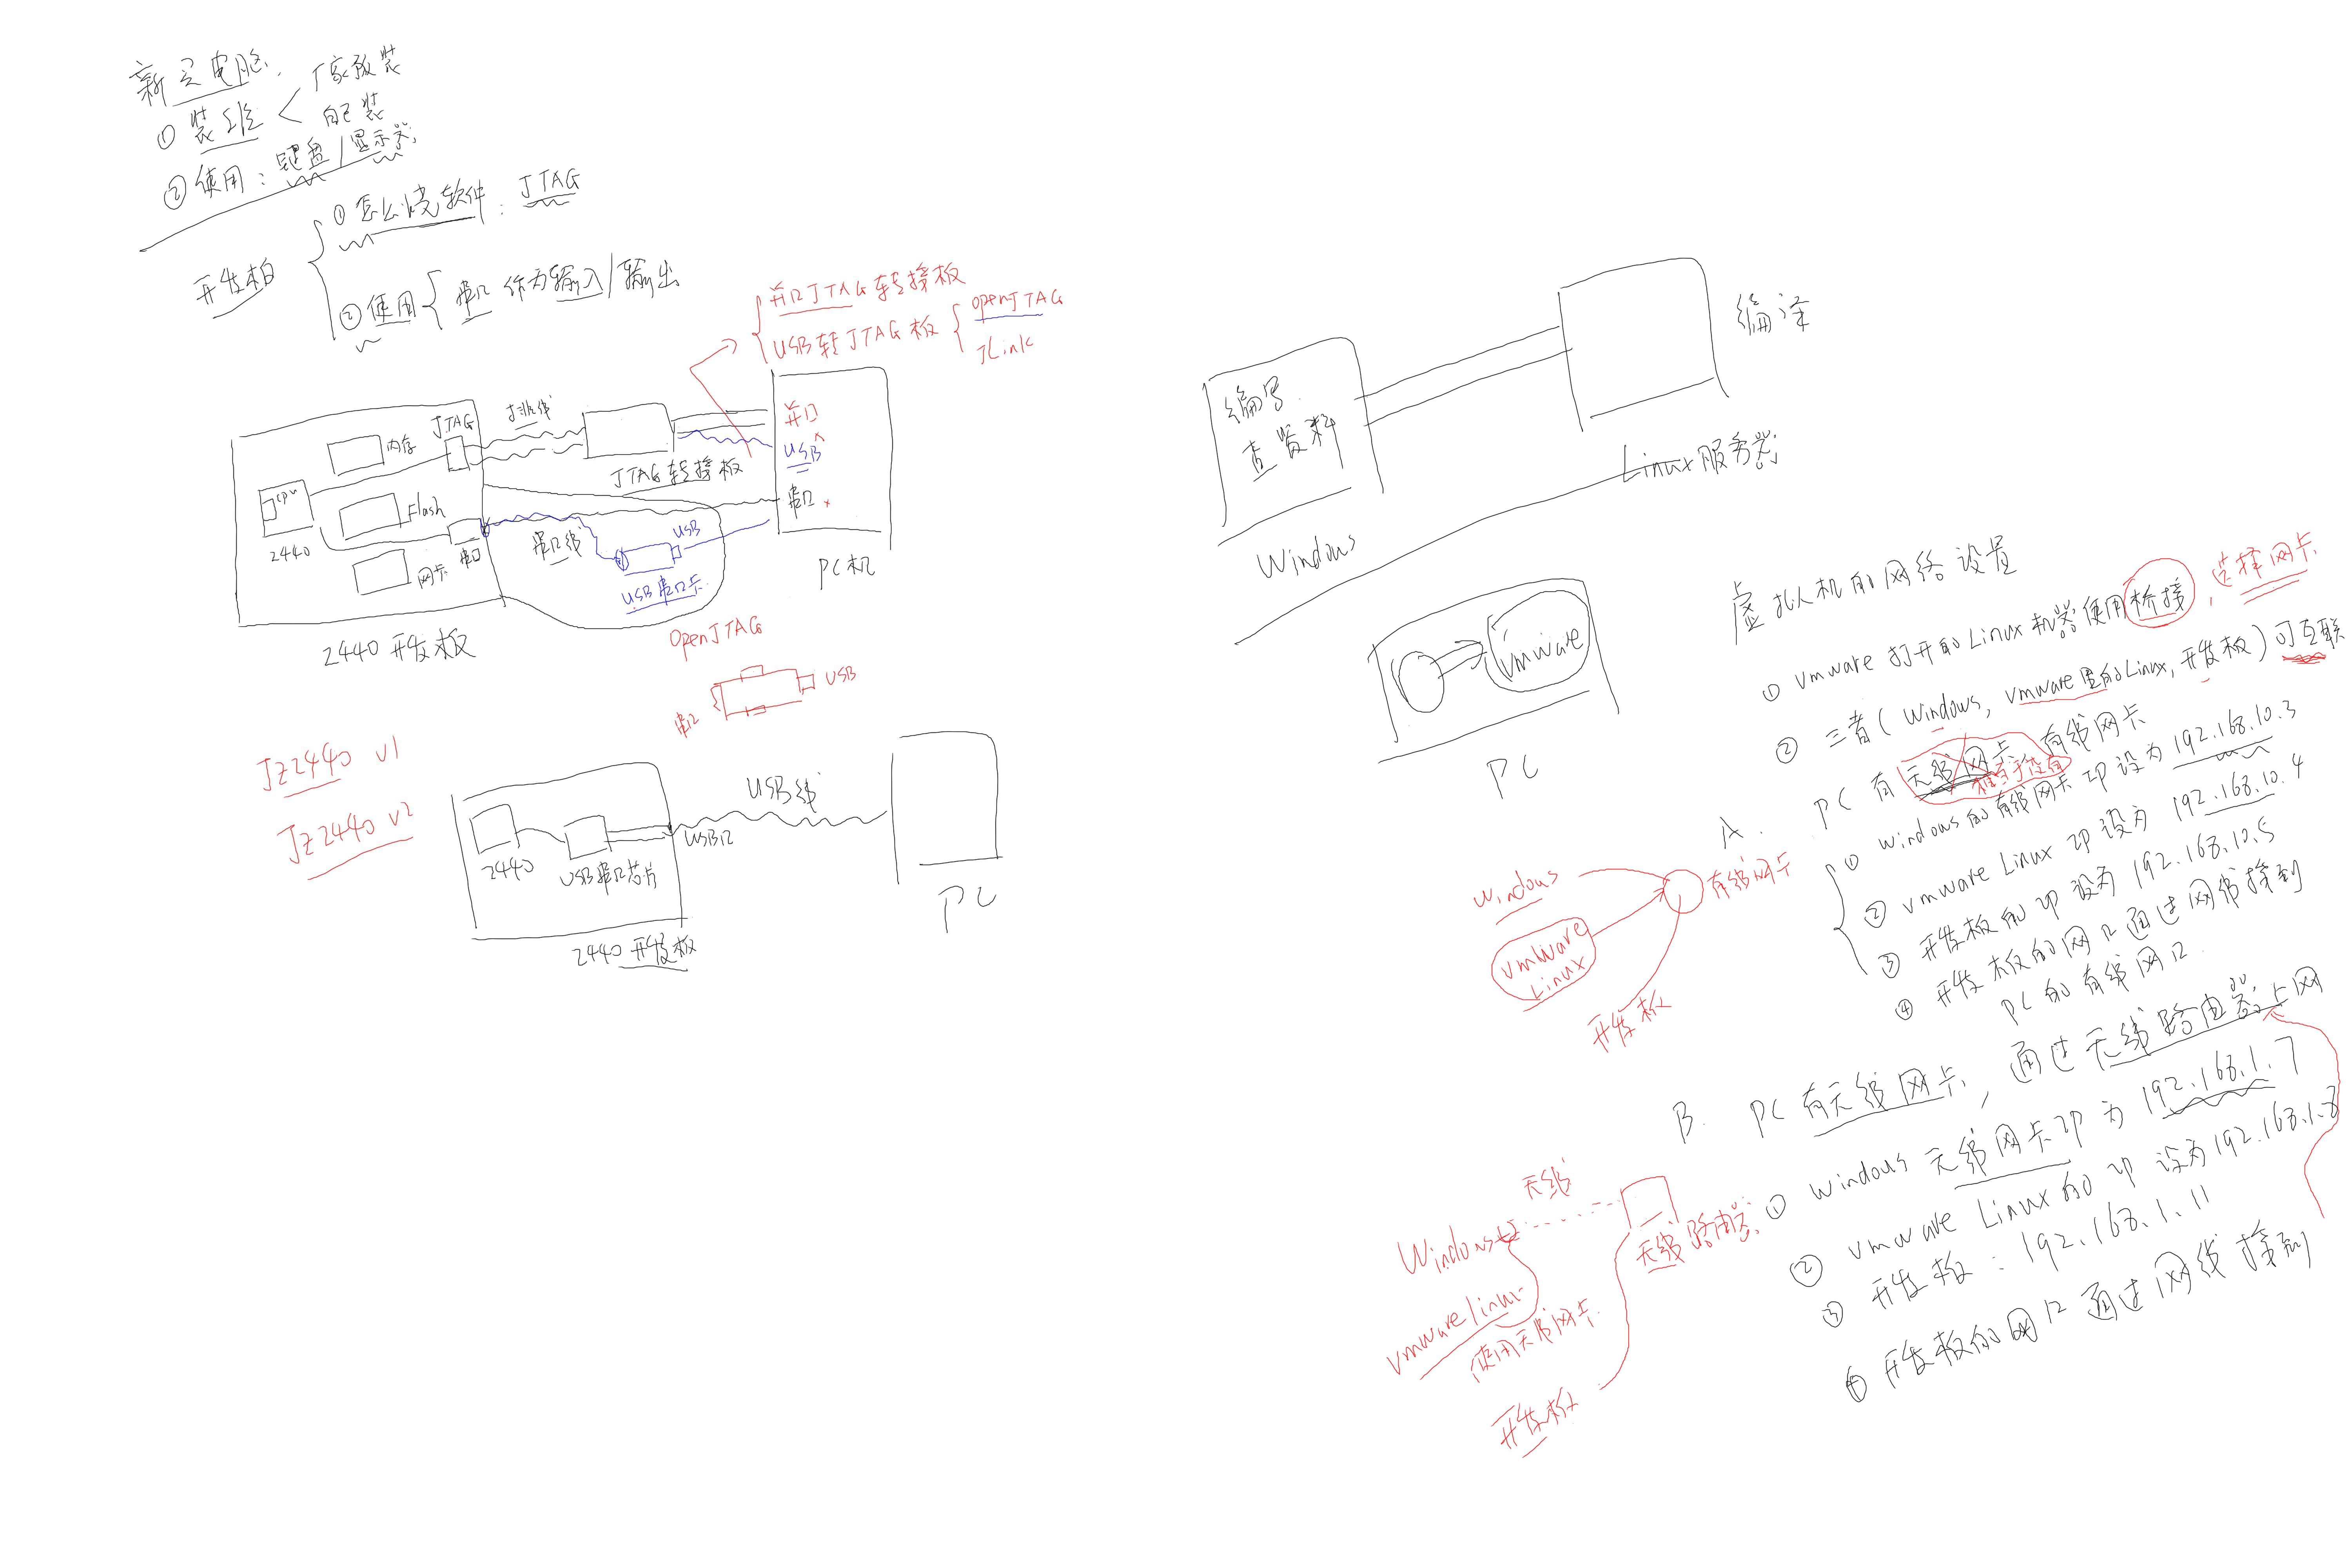 新买电脑.
① 装系统 < 厂家预装
自己装
② 使用: 键盘/显示器
开发板
① 怎么烧软件: JTAG
② 使用 { 串口 作为输入/输出
并口JTAG转接板
USB转JTAG板 { openJTAG
JLink
JTAG
排线
内存
CPU
2440
Flash
网卡
串口
JTAG转接板
并口
USB
串口
PC机
串口线
USB
USB串口卡
2440开发板
OpenJTAG
USB
串口
JZ2440 v1
JZ2440 v2
2440
USB串口芯片
USB口
USB线
PC
2440开发板
编写
查资料
Windows
编译
Linux服务器
vmware
PC
虚拟机的网络设置
① vmware打开的Linux机器使用桥接, 选择网卡
② 三者(windows, vmware里的Linux, 开发板)可互联
A. PC有无线网卡 有线网卡
相当于没有
① windows的有线网卡IP设为192.168.10.3
② vmware Linux IP设为192.168.10.4
③ 开发板的IP设为192.168.10.5
④ 开发板的网口通过网线接到
PC的有线网口.
windows
vmware
Linux
有线网卡
开发板
B. PC有无线网卡, 通过无线路由器上网
① windows无线网卡IP为192.168.1.7
② vmware Linux的IP设为192.168.1.8
③ 开发板: 192.168.1.11
④ 开发板的网口通过网线接到
无线
Windows
无线路由器
vmware linux
使用无线网卡.
开发板